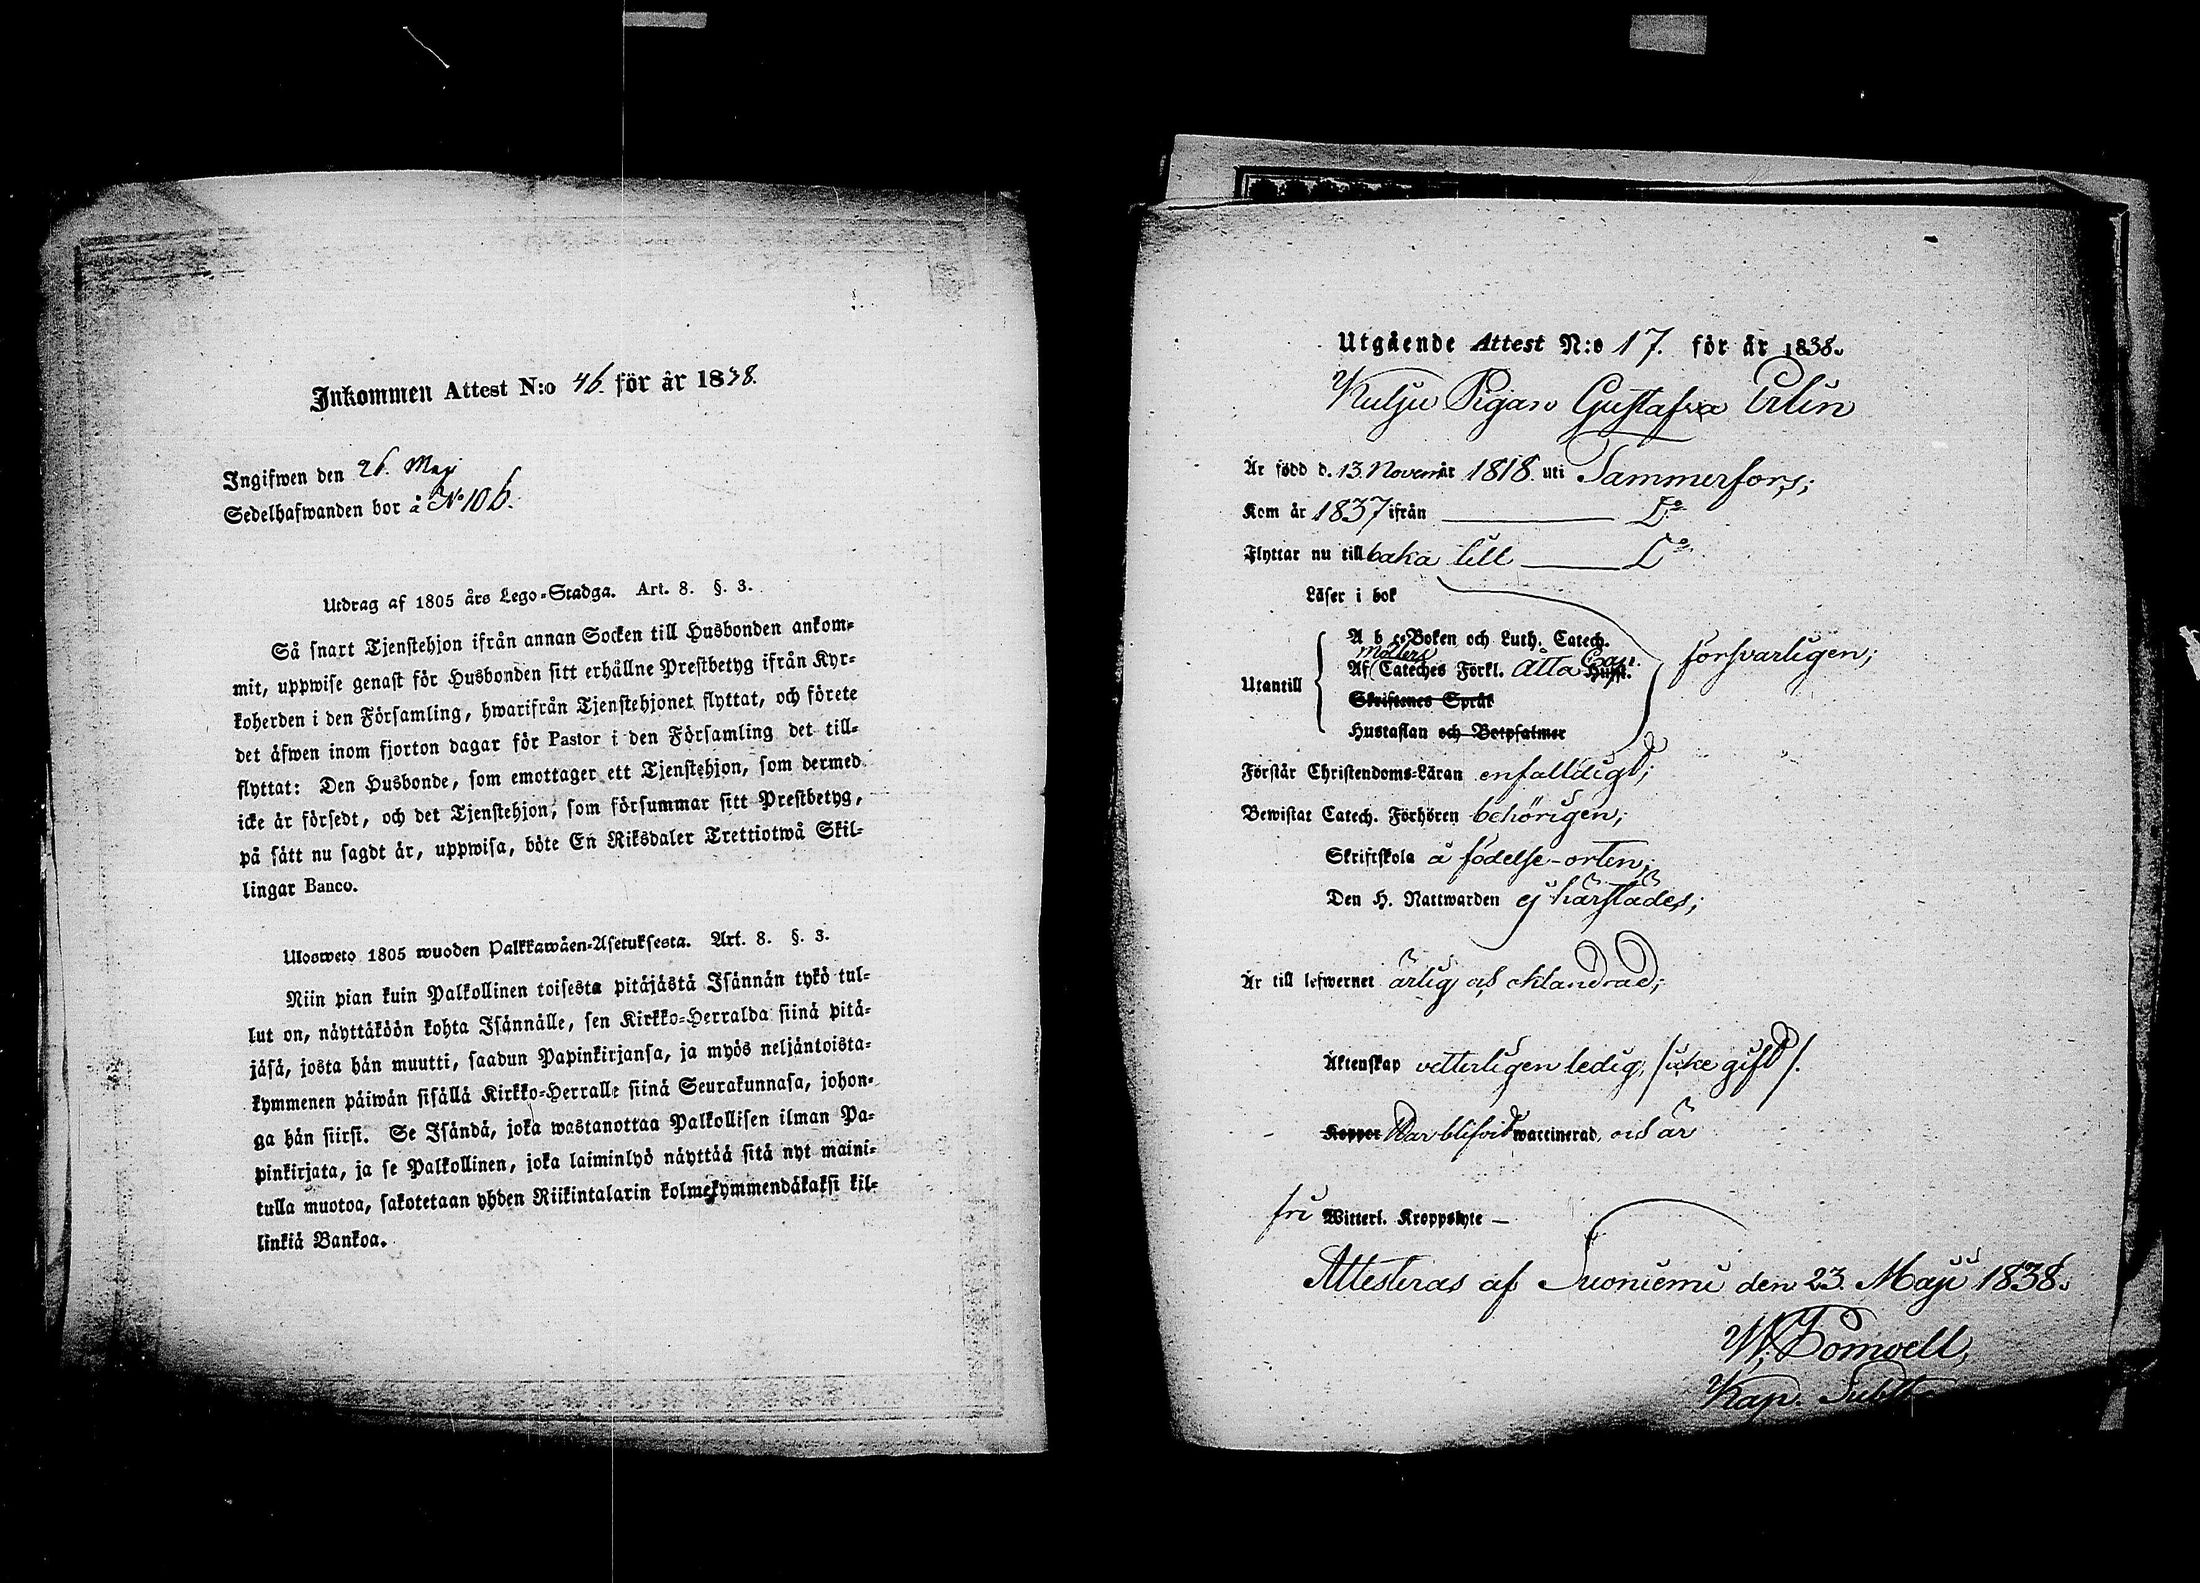 Inkommen Attest N:o 46. för år 1838.
Ingifwen den 26. Maji
Sedelhafwanden bor å No 106.
Utdrag af 1805 års Lego-Stadga. Art. 8. §. 3.
Så snart Tjenstehjon ifrån annan Socken till Husbonden ankom-
mit, uppwise genast för Husbonden sitt erhållne Prestbetyg ifrån Kyr-
koherden i den Församling, hwarifrån Tjenstehjonet flyttat, och förete
det äfwen inom fjorton dagar för Pastor i den Församling det till-
flyttat: Den Husbonde, som emottager ett Tjenstehjon, som dermed
icke är försedt, och det Tjenstehjon, som försummar sitt Prestbetyg,
på sätt nu sagdt är, uppwisa, böte En Riksdaler Trettiotwå Skil-
lingar Banco.
Ulosweto 1805 wuoden Palkkawäen-Asetuksesta. Art. 8. §. 3.
Niin pian kuin Palkollinen toisesta pitäjästä Isännän tykö tul-
lut on, näyttäköön kohta Isännälle, sen Kirkko-Herralda siinä pitä-
jäsä, josta hän muutti, saadun Papinkirjansa, ja myös neljäntoista-
kymmenen päiwän sisällä Kirkko-Herralle siinä Seurakunnasa, johon-
ga hän siirsi. Se Isändä, joka wastanottaa Palkollisen ilman Pa-
pinkirjata, ja se Palkollinen, joka laiminlyö näyttää sitä nyt maini-
tulla muotoa, sakotetaan yhden Riikintalarin kolmekymmendäkaksi kil-
linkiä Bankoa.
Utgående Attest N:o 17. för år 1838.
Kulju Pigan Gustafva Erlin
Är född d. 13. Novem år 1818. uti Tammerfors;
Kom år 1837 ifrån ——— Do
Flyttar nu tillbaka till ——— Do
Läser i bok
A b c-Boken och Luth. Catech.
Möllers
Af Cateches Förkl. Åtta Cap. Hufst.
Utantill försvarligen;
Skriftenes Språk
Hustaflan och Botpsalmer
Förstår Christendoms-Läran enfalldigt;
Bewistat Catech. Förhören behörigen;
Skriftskola å födelse-orten;
Den H. Nattwarden ej härstädes;
Är till lefwernet ärlig och oklandrad;
Äktenskap vetterligen ledig, /icke gift/.
Koppor Har blifvit waccinerad, och är
fri Witterl. Kroppslyte —
Attesteras af Suoniemi den 23. Maji 1838.
Kap. Subst.